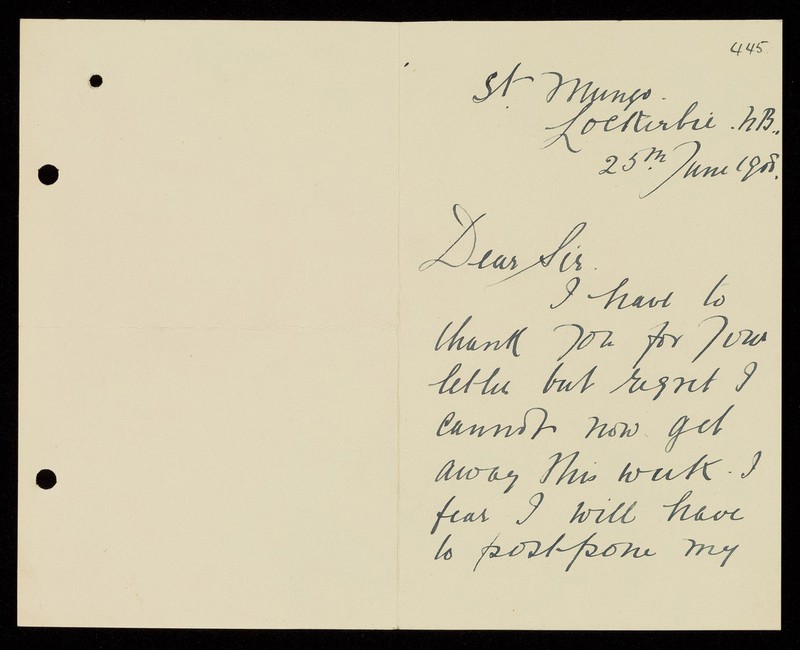 445
St Mungo.
Lockerbie. N.B.,
25th June 1908.
Dear Sir.
I have to
thank you for your
letter but regret I
cannot now get
away this week. I
fear I will have
to postpone my